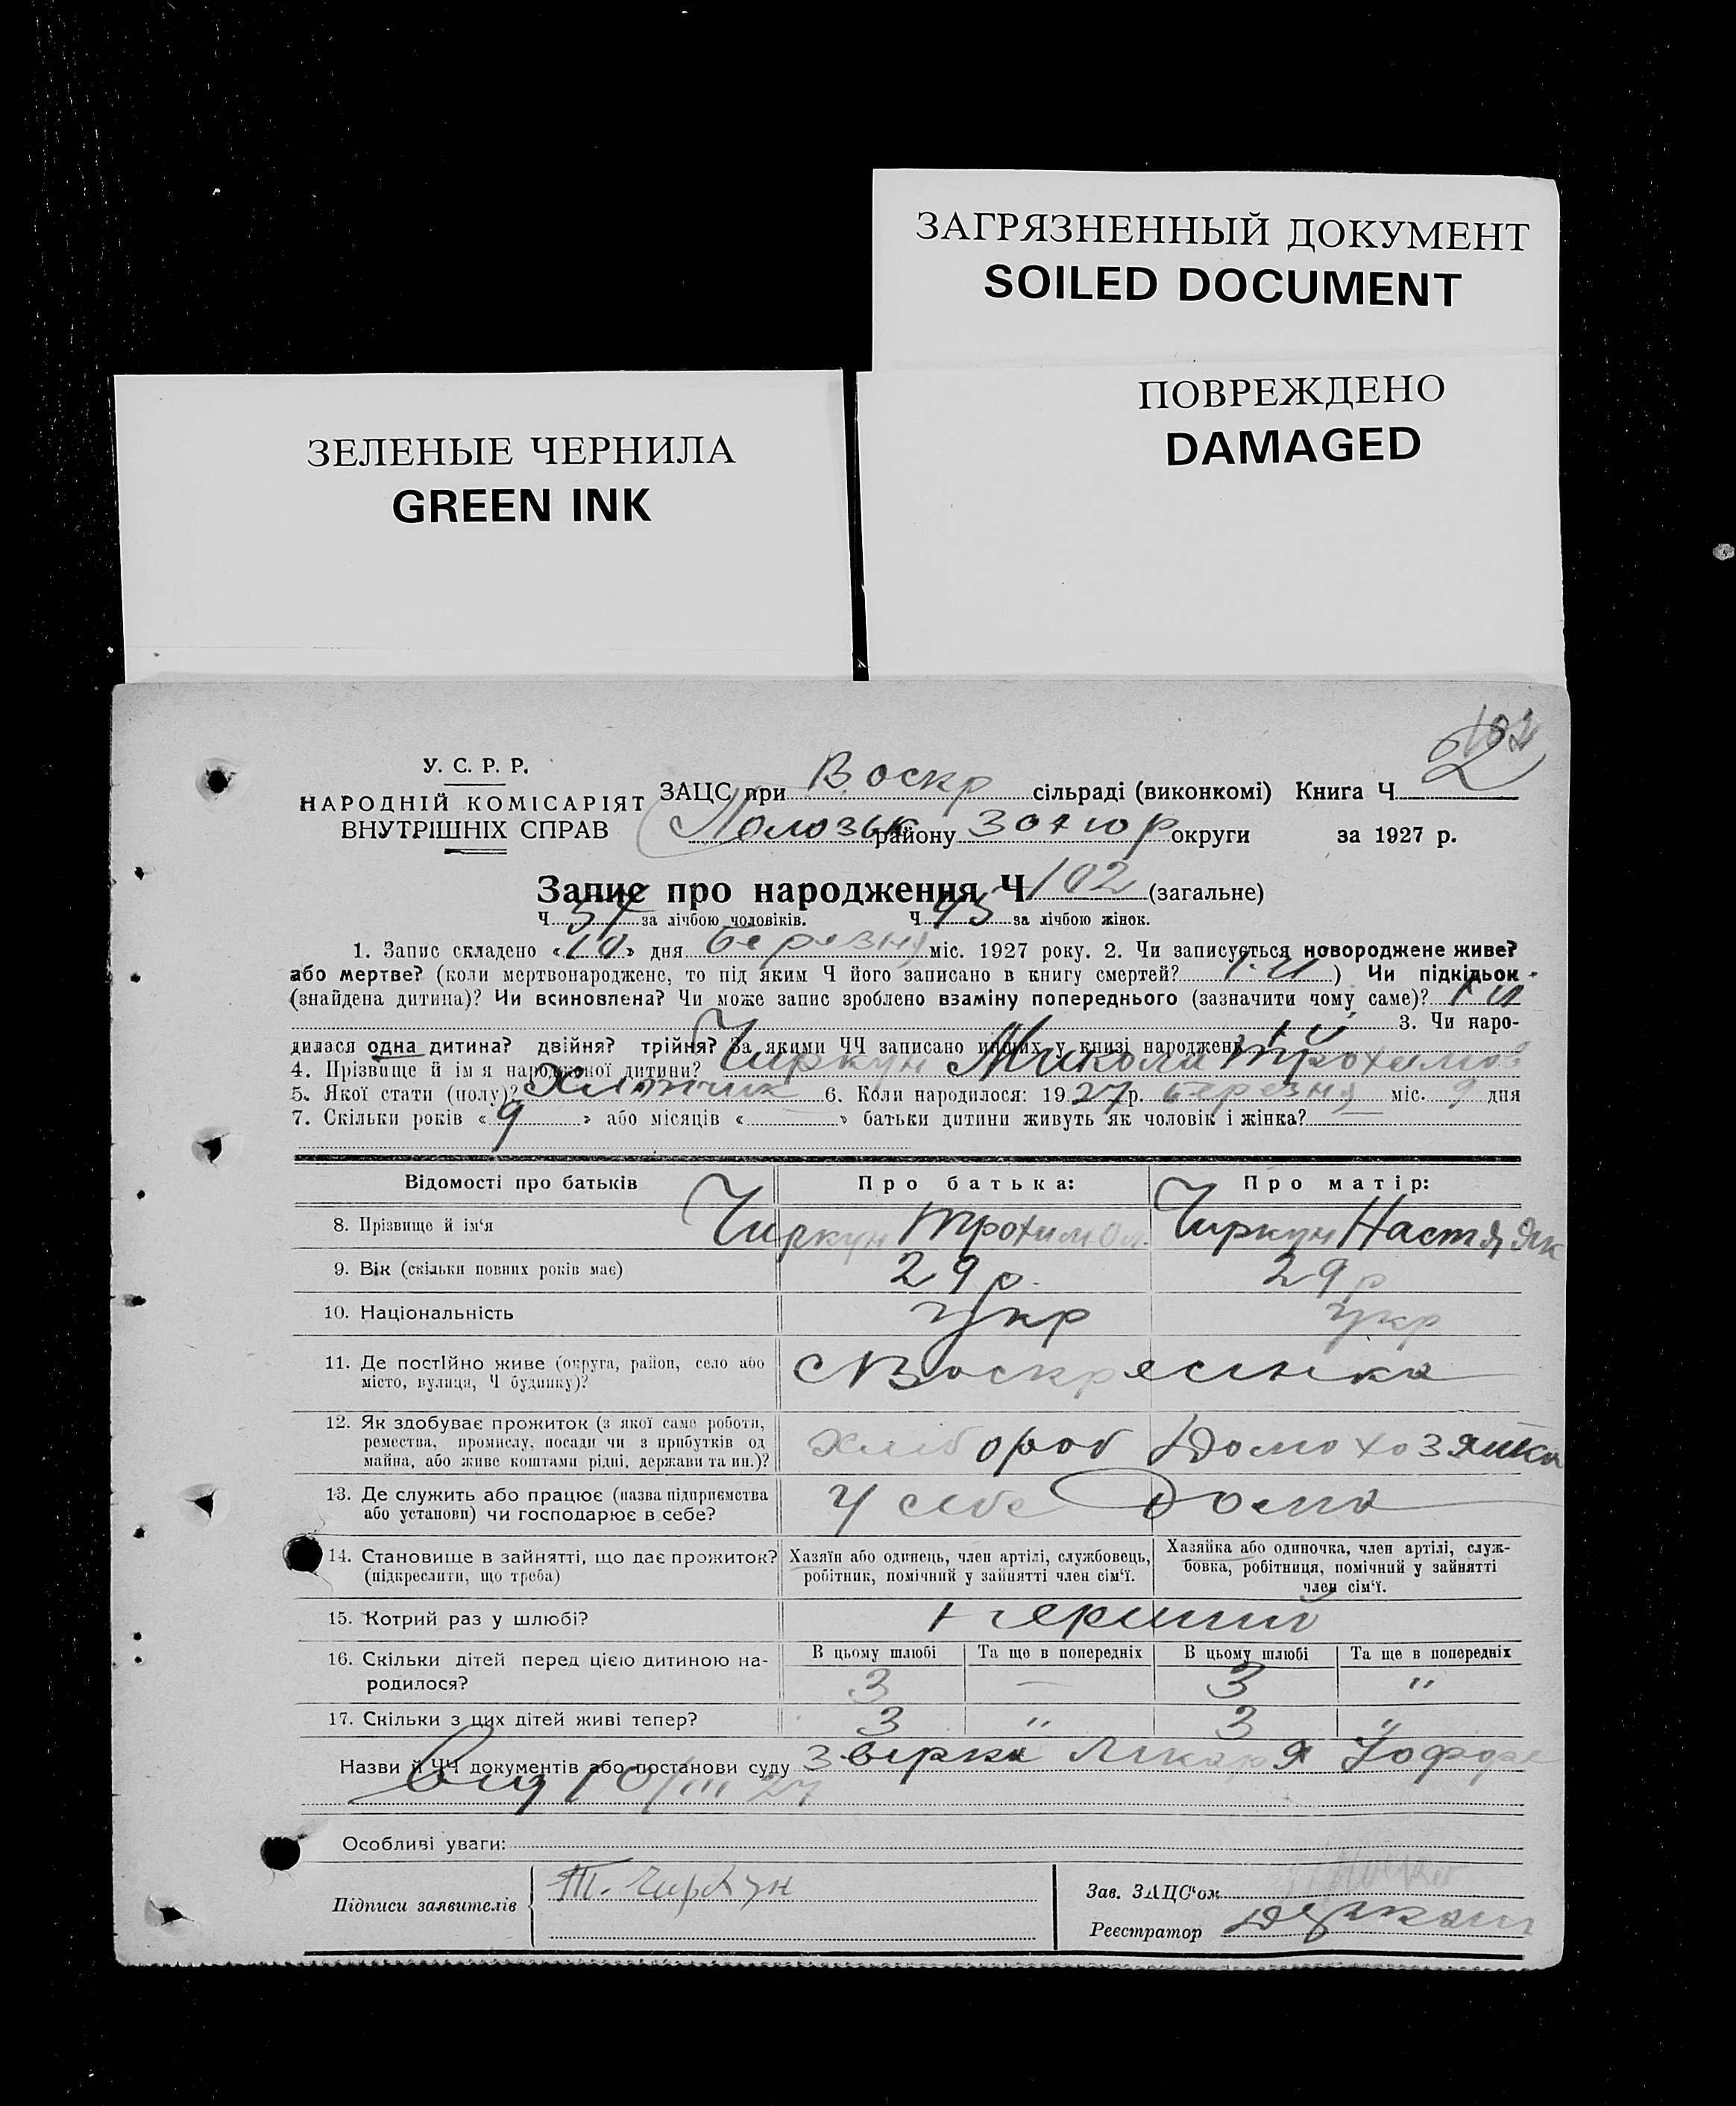 ЗАГРЯЗНЕННЫЙ ДОКУМЕНТ
SOILED DOCUMENT
ПОВРЕЖДЕНО
DAMAGED
ЗЕЛЕНЫЕ ЧЕРНИЛА
GREEN INK
102
У. С. Р. Р.
НАРОДНІЙ КОМІСАРІЯТ
ВНУТРІШНІХ СПРАВ
ЗАЦС при Воскр сільраді (виконкомі) Книга Ч 2
Пологзьк району Запор округи за 1927 р.
Запис про народження Ч 102 (загальне)
Ч 57 за лічбою чоловіків. Ч 45 за лічбою жінок.
1. Запис складено «10» дня березня міс. 1927 року. 2. Чи записується новороджене живе?
або мертве? (коли мертвонароджене, то під яким Ч його записано в книгу смертей? ) Чи підкідьок
(знайдена дитина)? Чи всиновлена? Чи може запис зроблено взаміну попереднього (зазначити чому саме)?
3. Чи наро-
дилася одна дитина? двійня? трійня? За якими ЧЧ записано инших у книзі народжень
4. Прізвище й ім я народженої дитини? Чиркун Микола Трохимов
5. Якої стати (полу)? Хлопчик 6. Коли народилося: 1927 р. березня міс. 9 дня
7. Скільки років «9» або місяців « » батьки дитини живуть як чоловік і жінка? —
Відомості про батьків Про батька: Про матір:
8. Прізвище й ім‘я Чиркун Трохим Ол. Чиркун Настя Як
9. Вік (скільки повних років має) 29 р. 29 р
10. Національність Укр Укр
11. Де постійно живе (округа, район, село або
місто, вулиця, Ч будинку)? с Воскресенка
12. Як здобуває прожиток (з якої саме роботи,
ремества, промислу, посади чи з прибутків од
майна, або живе коштами рідні, держави та ин.)? Хлібороб Домохозяйка
13. Де служить або працює (назва підприємства
або установи) чи господарює в себе? У себе Дома
14. Становище в зайнятті, що дає прожиток?
(підкреслити, що треба)
Хазяїн або одинець, член артілі, службовець,
робітник, помічний у зайнятті член сім‘ї.
Хазяйка або одиночка, член артілі, служ-
бовка, робітниця, помічний у зайнятті
член сім‘ї.
15. Котрий раз у шлюбі? Перший
16. Скільки дітей перед цією дитиною на-
родилося?
В цьому шлюбі Та ще в попередніх В цьому шлюбі Та ще в попередніх
3 — 3 "
17. Скільки з цих дітей живі тепер? 3 " 3 "
Назви й ЧЧ документів або постанови суду Лікаря
від 10/III 27
Особливі уваги:
Підписи заявителів Т. Чиркун
Зав. ЗАЦС‘ом
Реєстратор